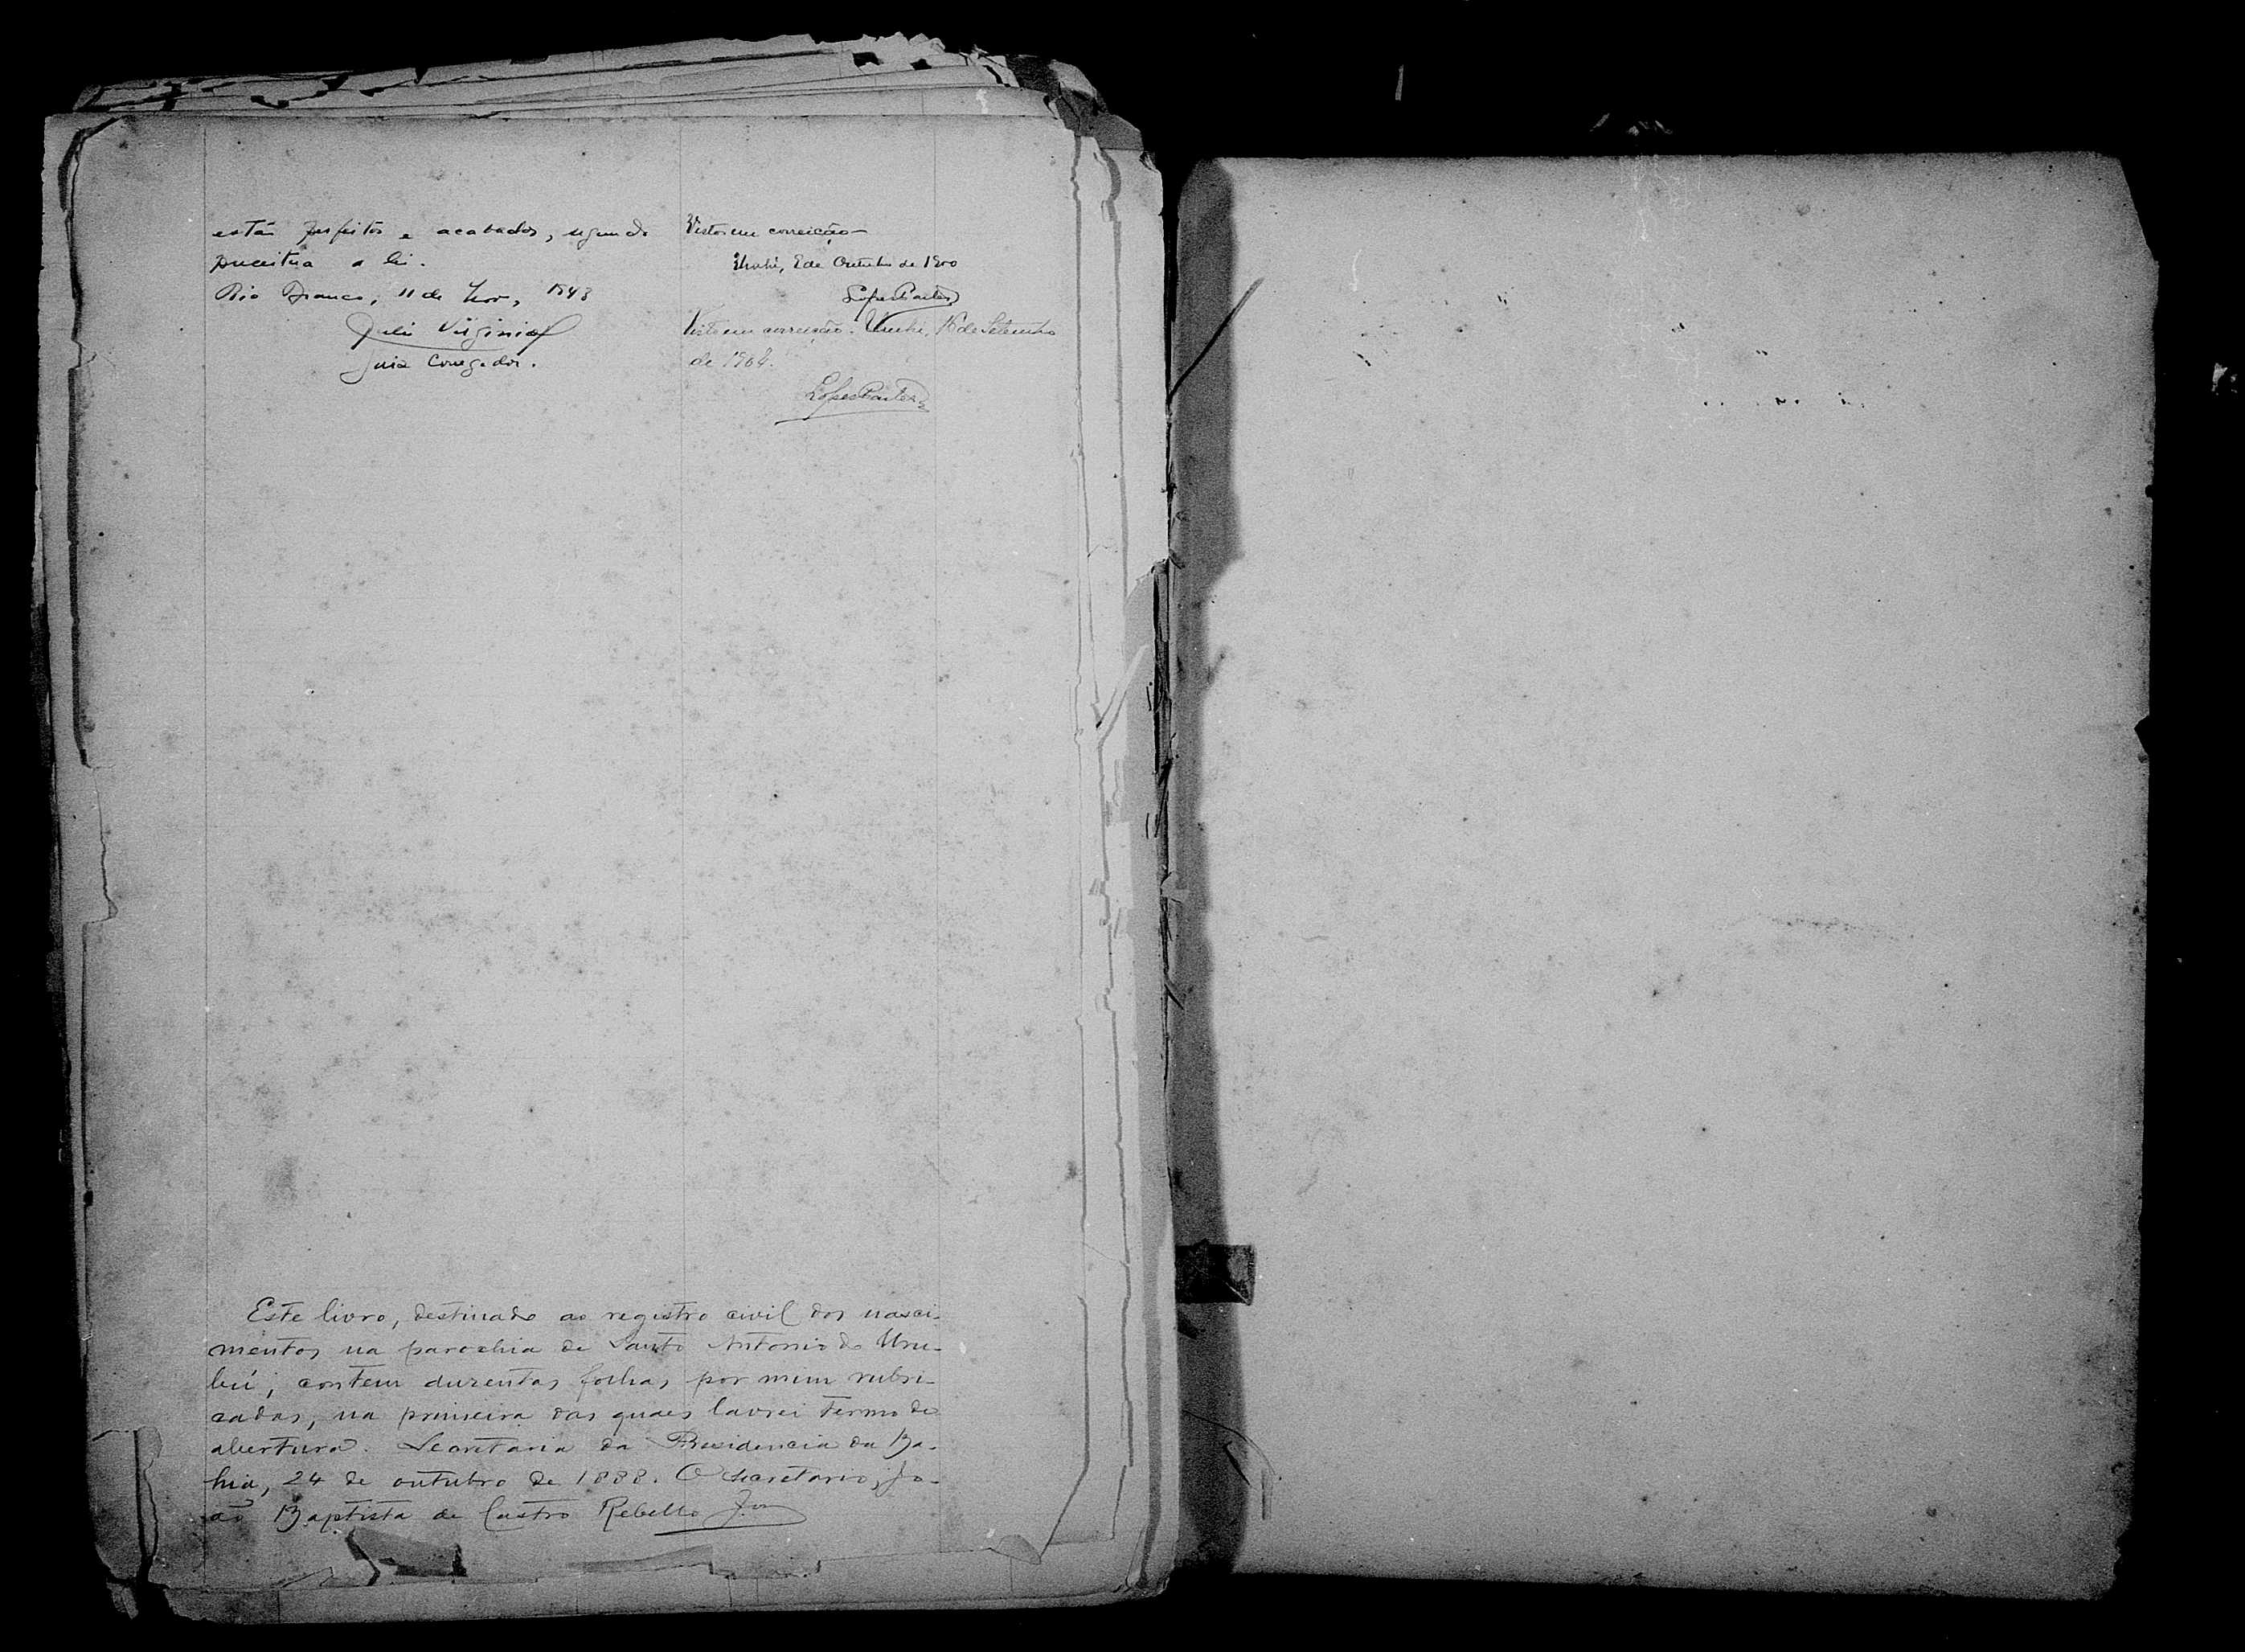 estão perfeitos e acabados, segundo
preceitua a lei.
Rio Branco, 11 de Nov., 1943
Juiz Corregedor.
Visto em correição
Urubú, 2 de Outubro de 1900
Lopes Pontes
Visto em correição. Urubú, 16 de Setembro
de 1904.
Lopes Pontes
Este livro, destinado ao registro civil dos nasci-
mentos na parochia de Santo Antonio do Uru-
bú, contem duzentas folhas por mim rubri-
cadas, na primeira das quaes lavrei termo de
abertura. Secretaria da Presidencia da Ba-
hia, 24 de outubro de 1888. O Secretario, Jo-
ão Baptista de Castro Rebello Jor